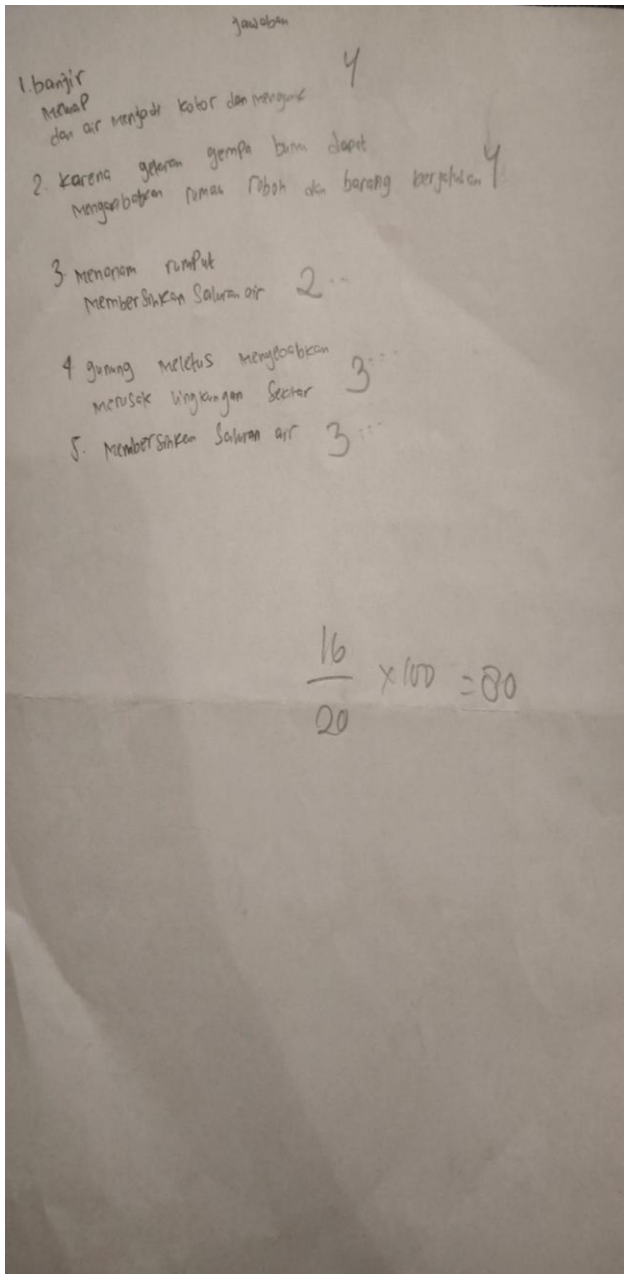 jawaban
1. banjir 4
meluap
dan air menjadi kotor dan
2. Karena getaran gempa bumi dapat
rumah roboh dan barang berjatuhan 4
3 Menanam rumput
Membersihkan Saluran air 2
4 gunung meletus menyebabkan
merusak lingkungan Sekitar 3
5. Membersihkan Saluran air 3
16
20
×100 = 80